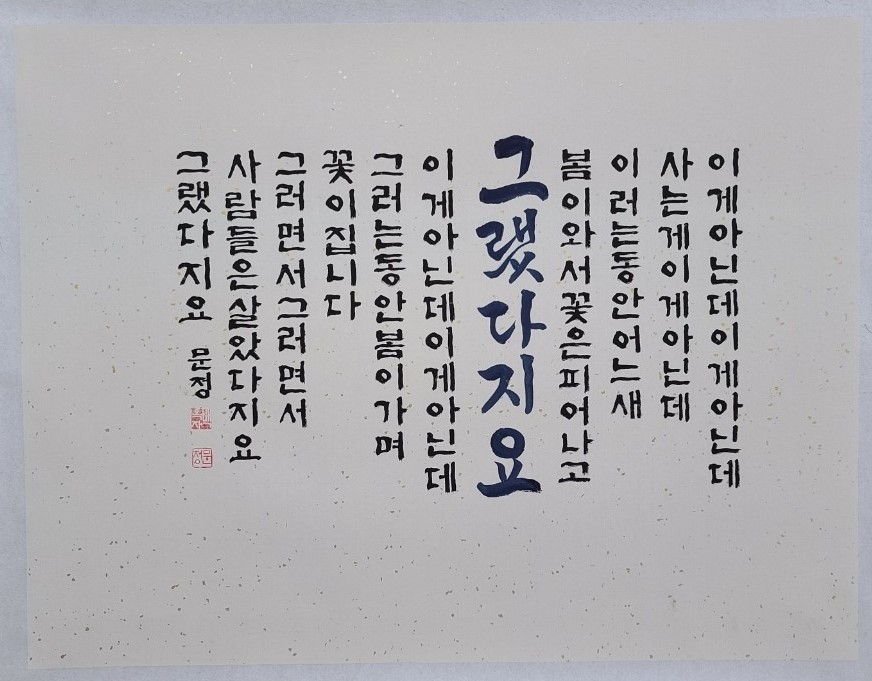 이게아닌데이게아닌데
사는게이게아닌데
이러는동안어느새
봄이와서꽃은피어나고
그랬다지요
이게아닌데이게아닌데
그러는동안봄이가며
꽃이집니다
그러면서그러면서
사람들은살았다지요
그랬다지요 문정
문정